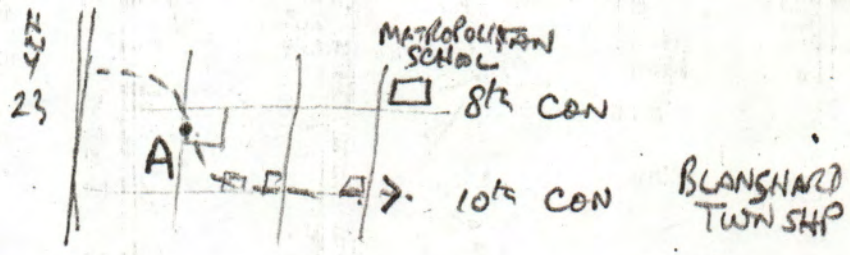 HWY
23
METROPOLITAN
SCHOOL
8th CON
A
10th CON
BLANSHARD
TWNSHP